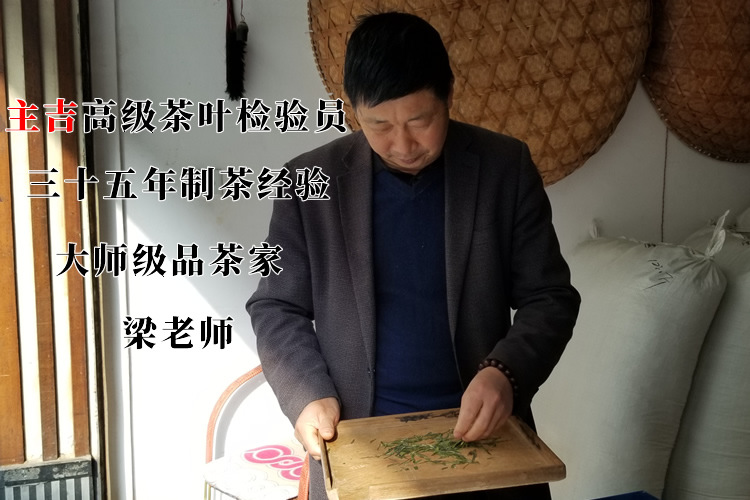 主吉高级茶叶检验员
三十五年制茶经验
大师级品茶家
梁老师